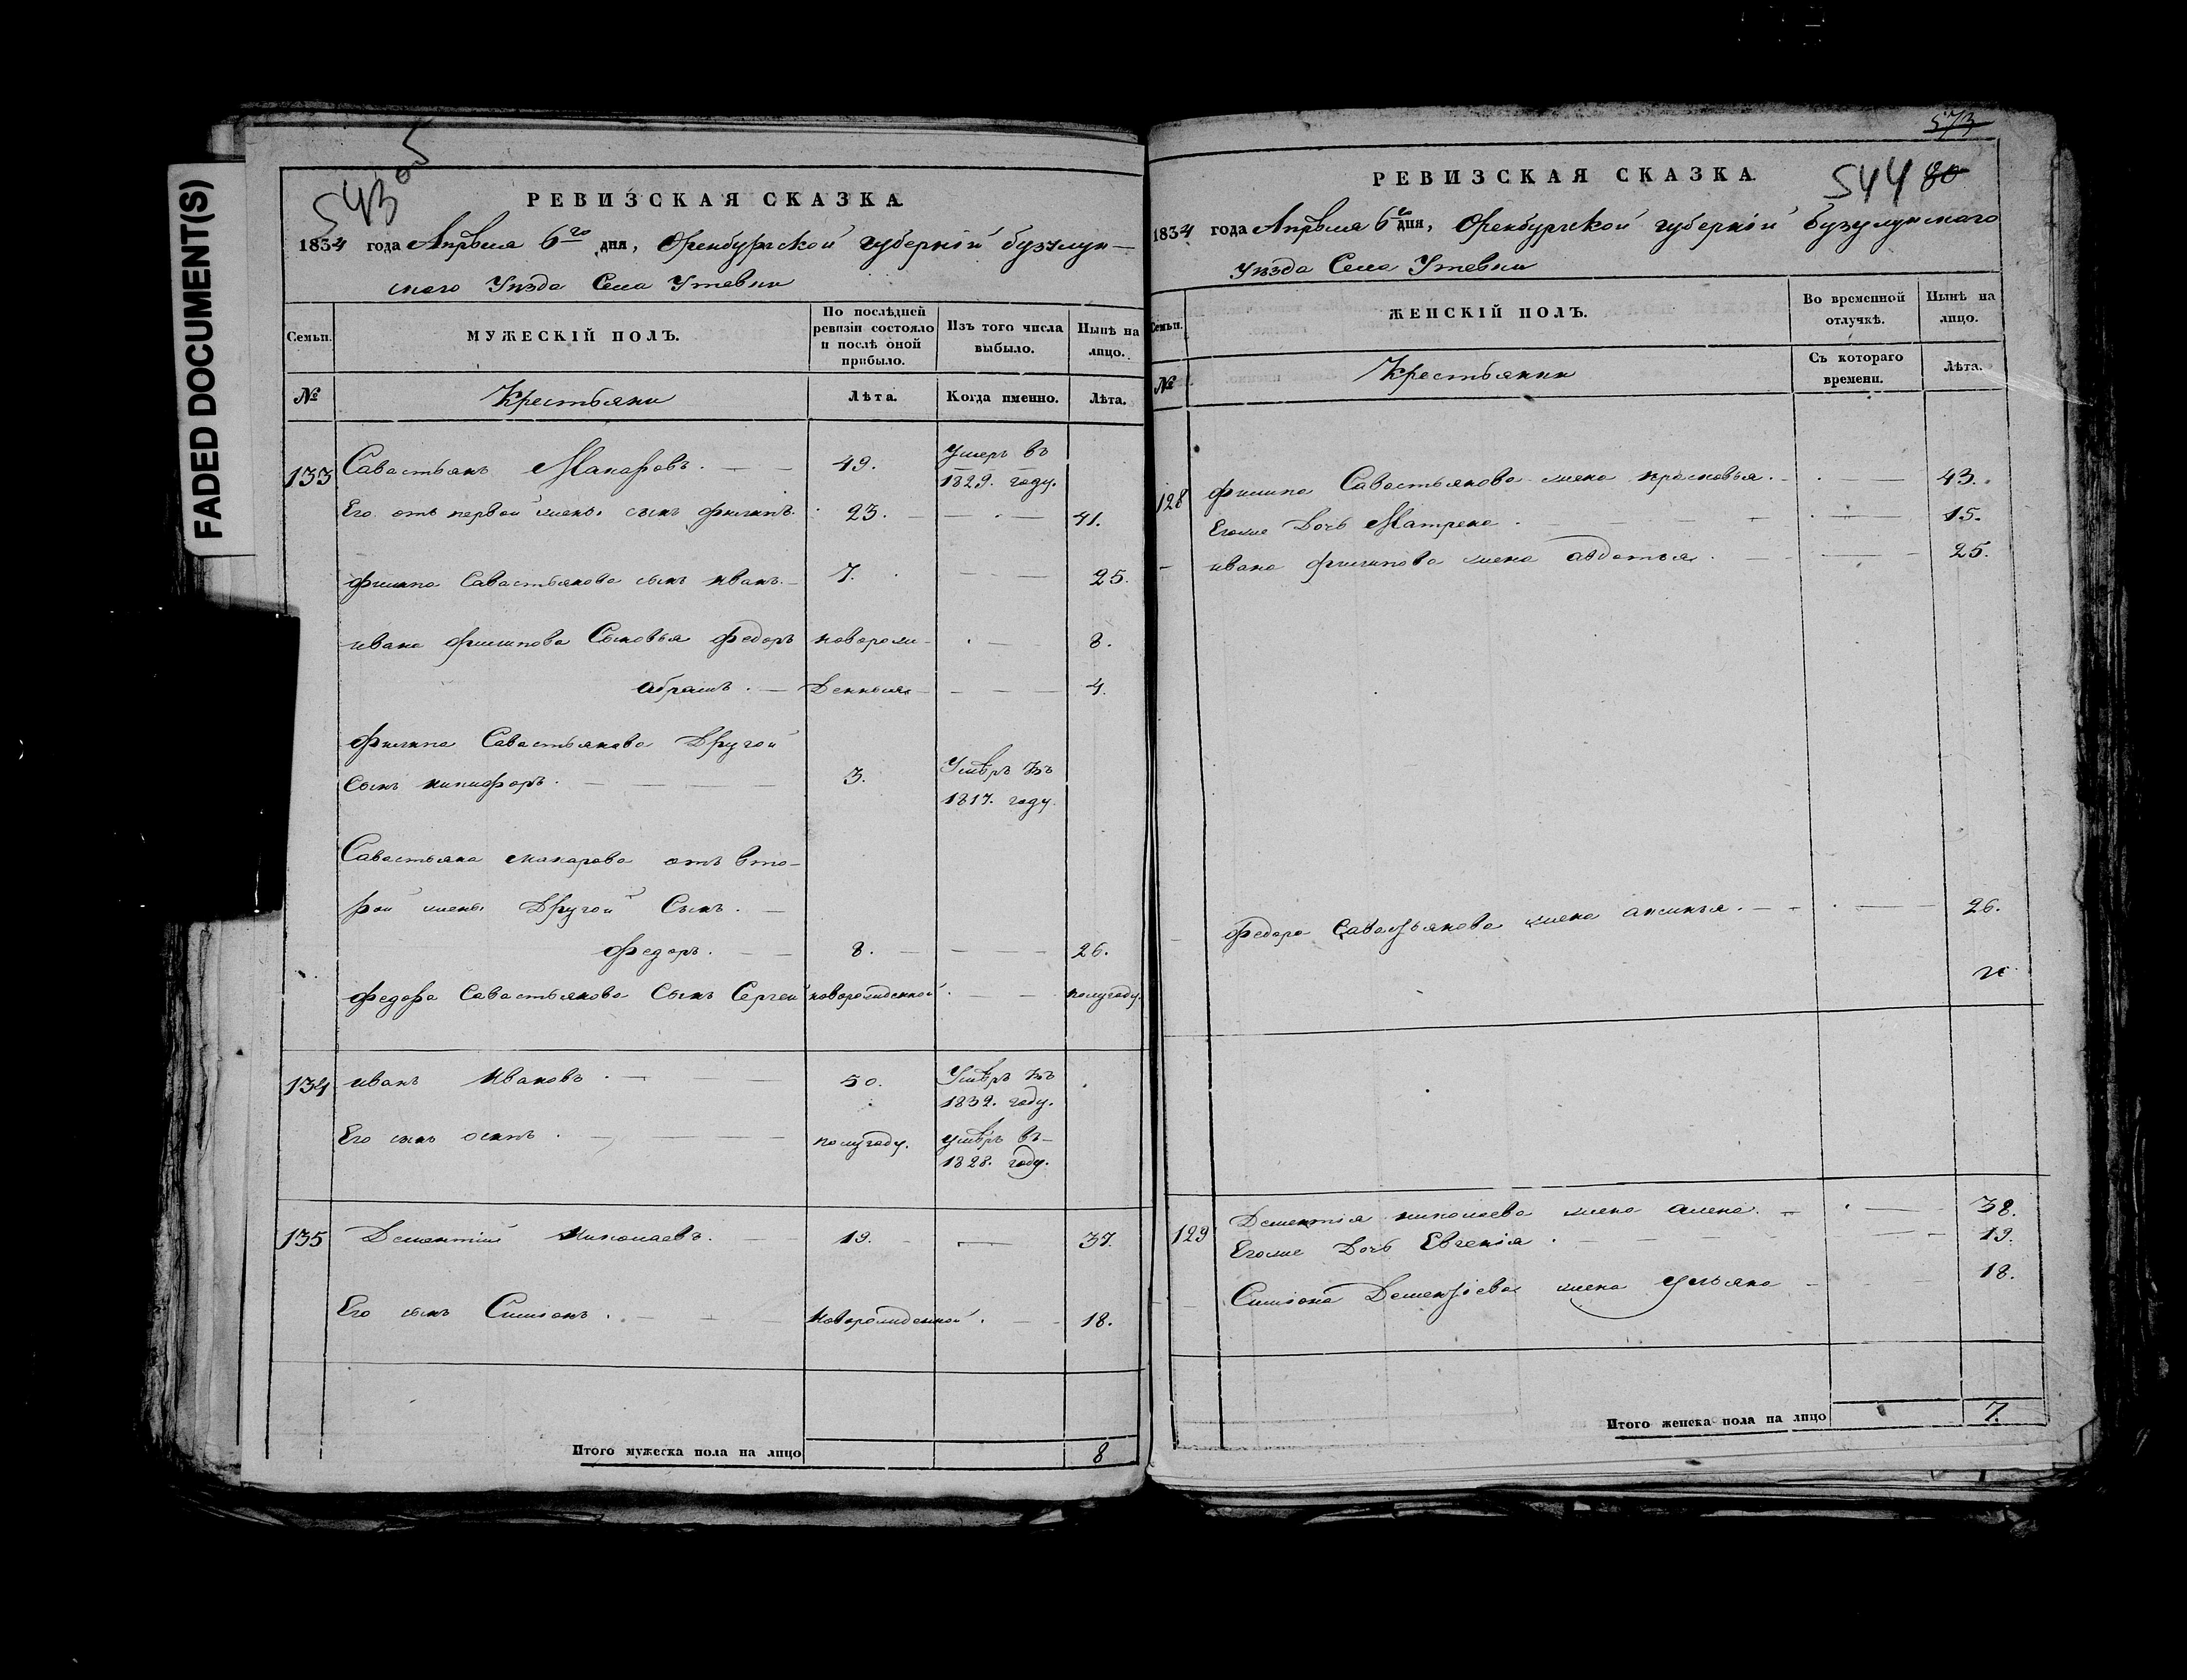 FADED DOCUMENT(S)
543
РЕВИЗСКАЯ СКАЗКА
1834 года Апрѣля 6го дня, Оренбургской губерніи бузулук-
скаго Уѣзда Села Утевки
Семьи.
МУЖЕСКІЙ ПОЛЪ.
По послѣдней
ревизіи состояло
и послѣ оной
прибыло.
Изъ того числа
выбыло.
Нынѣ на
лицо.
№
Крестьяни
Лѣта.
Когда именно.
Лѣта.
133 Савастьянъ Макаровъ. 49. Умеръ въ
1829. году.
Его отъ первой жены сынъ филипъ. 23. 41.
филипа Савастьянова сынъ иванъ. 7. 25.
ивана филипова Сыновья федоръ новорож- 8.
абрамъ. Денныя 4.
филипа Савастьянова Другой
сынъ никифоръ. 3. Умѣръ въ
1817. году.
Савастьяна макарова отъ вто-
рой жены Другой Сынъ.
федоръ. 8. 26.
федора Савастьянова Сынъ Сергей новорожденной полугоду.
134 иванъ Ивановъ. 50. Умѣръ въ
1832. году.
Его сынъ осипъ. полугоду. умѣръ въ
1828. году.
135 Дементій Николаевъ. 19. 37.
Его сынъ Симіонъ. Новорожденной. 18.
Итого мужеска пола на лицо 8
573
544 80
РЕВИЗСКАЯ СКАЗКА
1834 года Апрѣля 6го дня, Оренбургской губерніи бузулукскаго
Уѣзда Села Утевки
Семьи.
ЖЕНСКІЙ ПОЛЪ.
Во временной
отлучкѣ.
Нынѣ на
лицо.
№
Крестьянки
Съ котораго
времени.
Лѣта.
128 филипа Савастьянова жена прасковья. 43.
Егоже Дочь Матрена. 15.
ивана филипова жена авдотья. 25.
федора Савастьянова жена аксинья. 26.
129 Дементія николаева жена алена. 38.
Егоже Дочь Евгенія. 19.
Симіона Дементіева жена ульяна 18.
Итого женска пола на лицо 7.